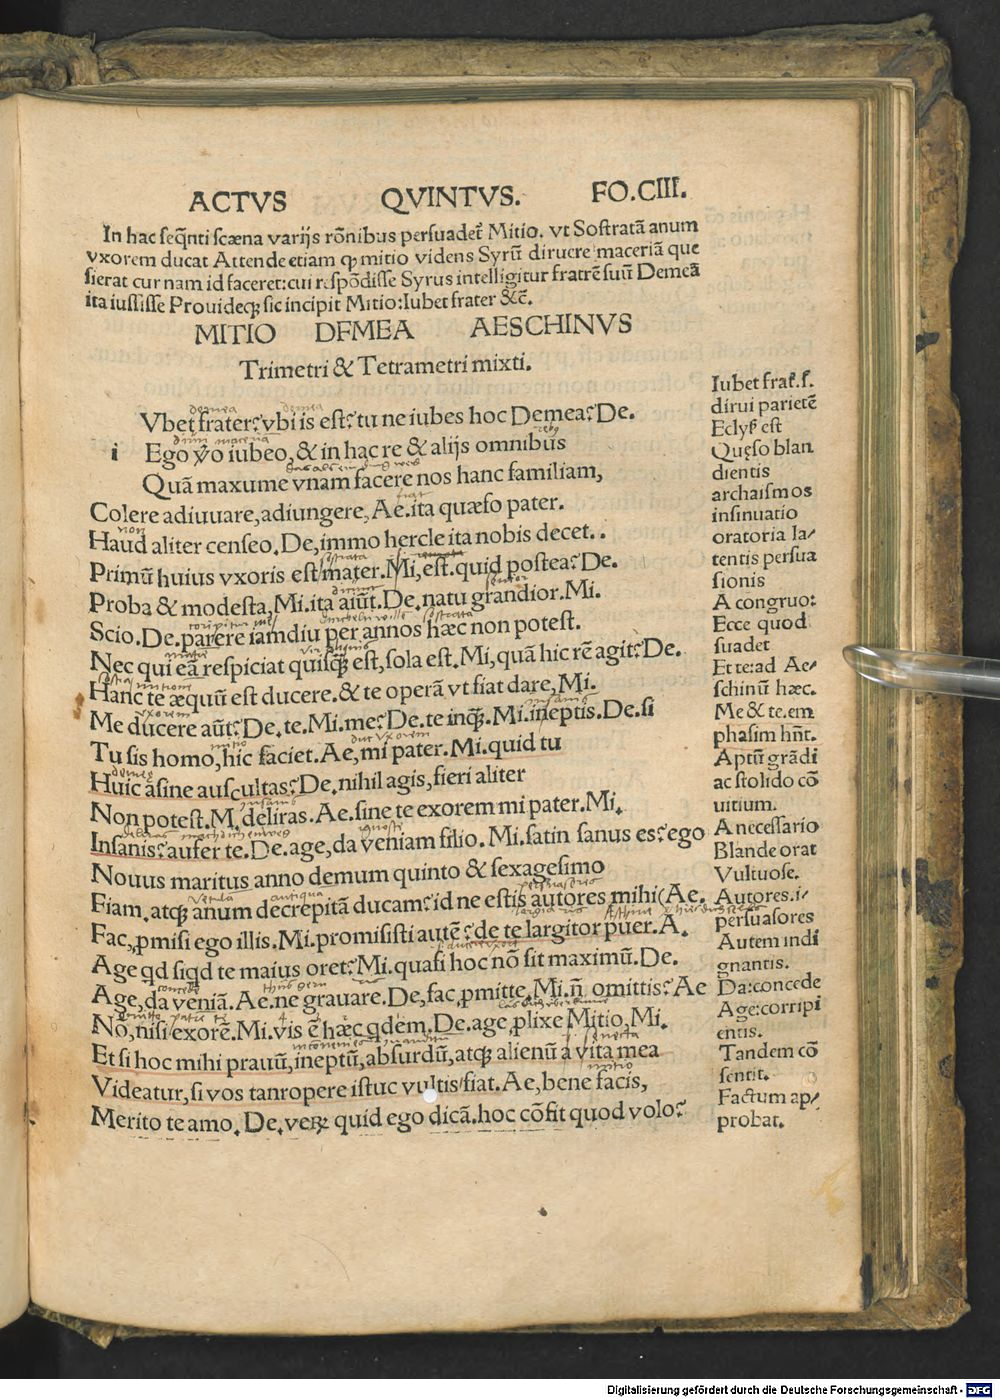 ACTVS QVINTVS. FO.CIII.
In hac seq̃nti scæna varijs rõnibus persuadet͛ Mitio. vt Sostratã anum
vxorem ducat Attende etiam ꝙ mitio videns Syrũ diruere maceriã que
sierat cur nam id faceret:cui respõdisse Syrus intelligitur fratrẽ suũ Demeã
ita iussisse Prouideqꝫ sic incipit Mitio:Iubet frater &c̃.
MITIO DEMEA AESCHINVS
Trimetri & Tetrametri mixti.
demea demea
Vbet frater:vbi is est:tu ne iubes hoc Demea:De.
i Ego v̊o iubeo,& in hac re & alijs omnibus
Quã maxume vnam facere nos hanc familiam,
Colere adiuuare,adiungere,Ae.ita quæso pater.
non
Haud aliter censeo.De,immo hercle ita nobis decet..
sostrata
Primũ huius vxoris est/mater.Mi,est.quid postea:De.
Proba & modesta,Mi.ita aiũt.De.natu grandior.Mi.
sostrata
Scio.De.parere iamdiu per annos hæc non potest.
Nec qui eã respiciat quisqꝫ est,sola est.Mi,quã hic rẽ agit:De.
Hanc te æquũ est ducere.& te operã vt fiat dare,Mi.
vxorem
Me ducere aũt:De.te.Mi.me:De.te inqꝫ.Mi.ineptis.De.si
mitio duc vxorem
Tu sis homo,hic faciet.Ae,mi pater.Mi.quid tu
demee
Huic asine auscultas:De,nihil agis,fieri aliter
insanis
Non potest.M,deliras.Ae.sine te exorem mi pater.Mi,
deliras
Insanis:aufer te.De.age,da veniam filio.Mi.satin sanus es:ego
Nouus maritus anno demum quinto & sexagesimo
vetula antiqua persuasores
Fiam.atqꝫ anum decrepitã ducam:id ne estis autores mihi(Ae.
Fac,ꝓmisi ego illis.Mi.promisisti autẽ:de te largitor puer.A.
Age qd siqd te maius oret:Mi.quasi hoc nõ sit maximũ.De.
concede
Age,da veniã.Ae.ne grauare.De,fac,ꝓmitte,Mi.ñ omittis:Ae
Nõ,nisi exorẽ.Mi.vis ẽ hæc qdẽm.De.age,ꝓlixe Mitio,Mi.
Et si hoc mihi prauũ,ineptũ,absurdũ,atqꝫ alienũ a vita mea
mitio
Videatur,si vos tanropere istuc vultis/fiat.Ae,bene facis,
Merito te amo.De.veꝝ quid ego dicã.hoc cõfit quod volo:
Iubet frat͛.s.
dirui parietẽ
Eclyp͛ est
Quęso blan
dientis
archaismos
insinuatio
oratoria la/
tentis persua
sionis
A congruo:
Ecce quod
suadet
Et te:ad Ae/
schinũ hæc.
Me & te.em
phasim hñt.
Aptũ grãdi
ac stolido cõ
uitium.
A necessario
Blande orat
Vultuose.
Autores.i.
persuasores
Autem indi
gnantis.
Da:concede
Age:corripi
entis.
Tandem cõ
sentit.
Factum ap/
probat.
Digitalisierung gefördert durch die Deutsche Forschungsgemeinschaft - DFG